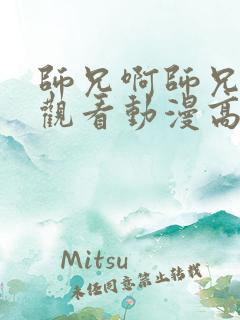 師兄啊師兄
觀看動漫高
Mitsu
未經同意禁止轉載